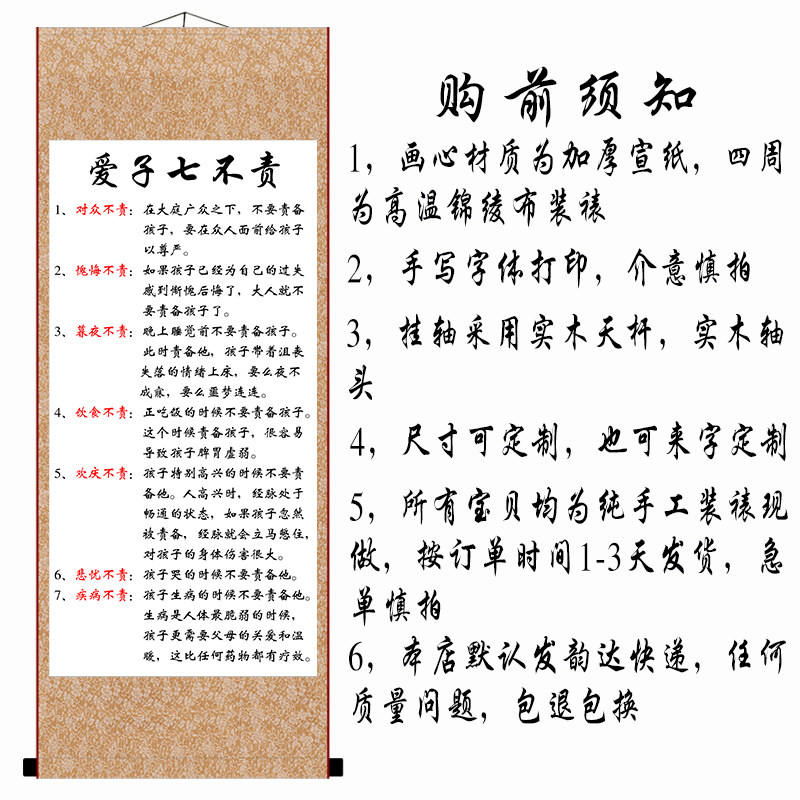 爱子七不责
1、对众不责：在大庭广众之下，不要责备
孩子，要在众人面前给孩子
以尊严。
2、愧悔不责：如果孩子已经为自己的过失
感到惭愧后悔了，大人就不
要责备孩子了。
3、暮夜不责：晚上睡觉前不要责备孩子。
此时责备他，孩子带着沮丧
失落的情绪上床，要么夜不
成寐，要么噩梦连连。
4、饮食不责：正吃饭的时候不要责备孩子。
这个时候责备孩子，很容易
导致孩子脾胃虚弱。
5、欢庆不责：孩子特别高兴的时候不要责
备他。人高兴时，经脉处于
畅通的状态，如果孩子忽然
被责备，经脉就会立马憋住，
对孩子的身体伤害很大。
6、悲忧不责：孩子哭的时候不要责备他。
7、疾病不责：孩子生病的时候不要责备他。
生病是人体最脆弱的时候，
孩子更需要父母的关爱和温
暖，这比任何药物都有疗效。
购前须知
1，画心材质为加厚宣纸，四周
为高温锦绫布装裱
2，手写字体打印，介意慎拍
3，挂轴采用实木天杆，实木轴
头
4，尺寸可定制，也可来字定制
5，所有宝贝均为纯手工装裱现
做，按订单时间1-3天发货，急
单慎拍
6，本店默认发韵达快递，任何
质量问题，包退包换